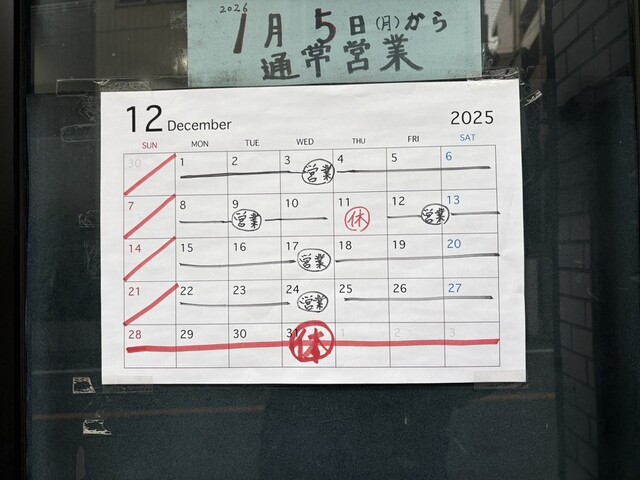 2026
1月5日(月)から
通常営業
12 December 2025
SUN MON TUE WED THU FRI SAT
30 1 2 3 4 5 6
営業
7 8 9 10 11 12 13
営業 休 営業
14 15 16 17 18 19 20
営業
21 22 23 24 25 26 27
営業
28 29 30 31 1 2 3
休